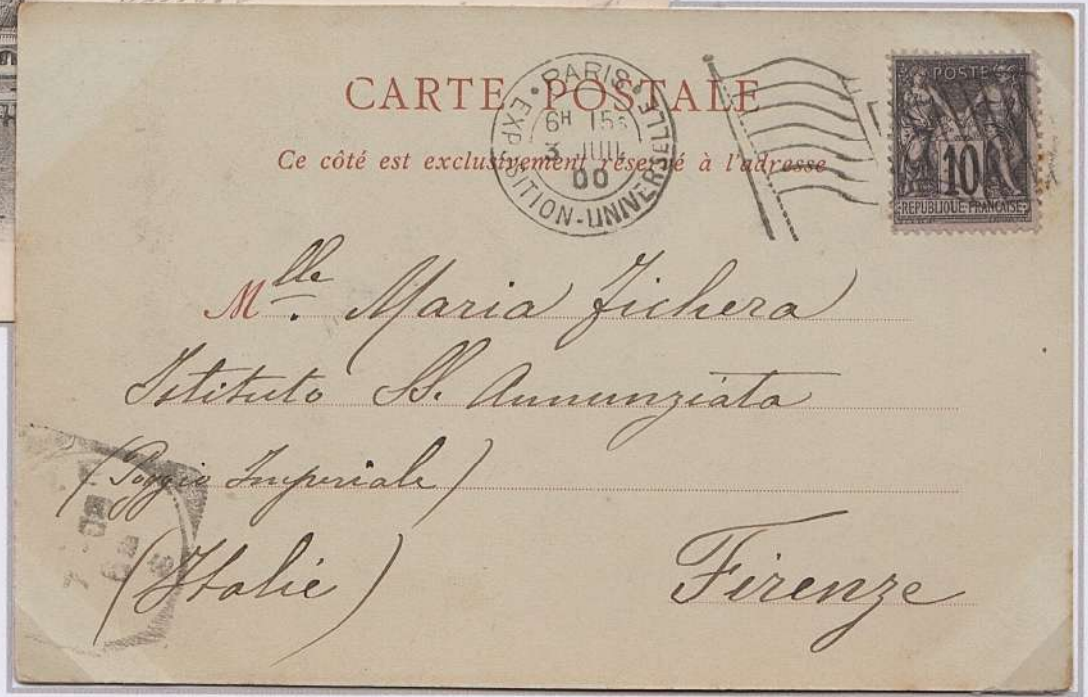 CARTE POSTALE
Ce côté est exclusivement réservé à l'adresse
PARIS
EXPOSITION-UNIVERSELLE
6H 15s
3 JUIL
00
POSTE
10
REPUBLIQUE FRANÇAISE
Mlle. Maria Fichera
Istituto SS. Annunziata
(Poggio Imperiale)
(Italie)
Firenze